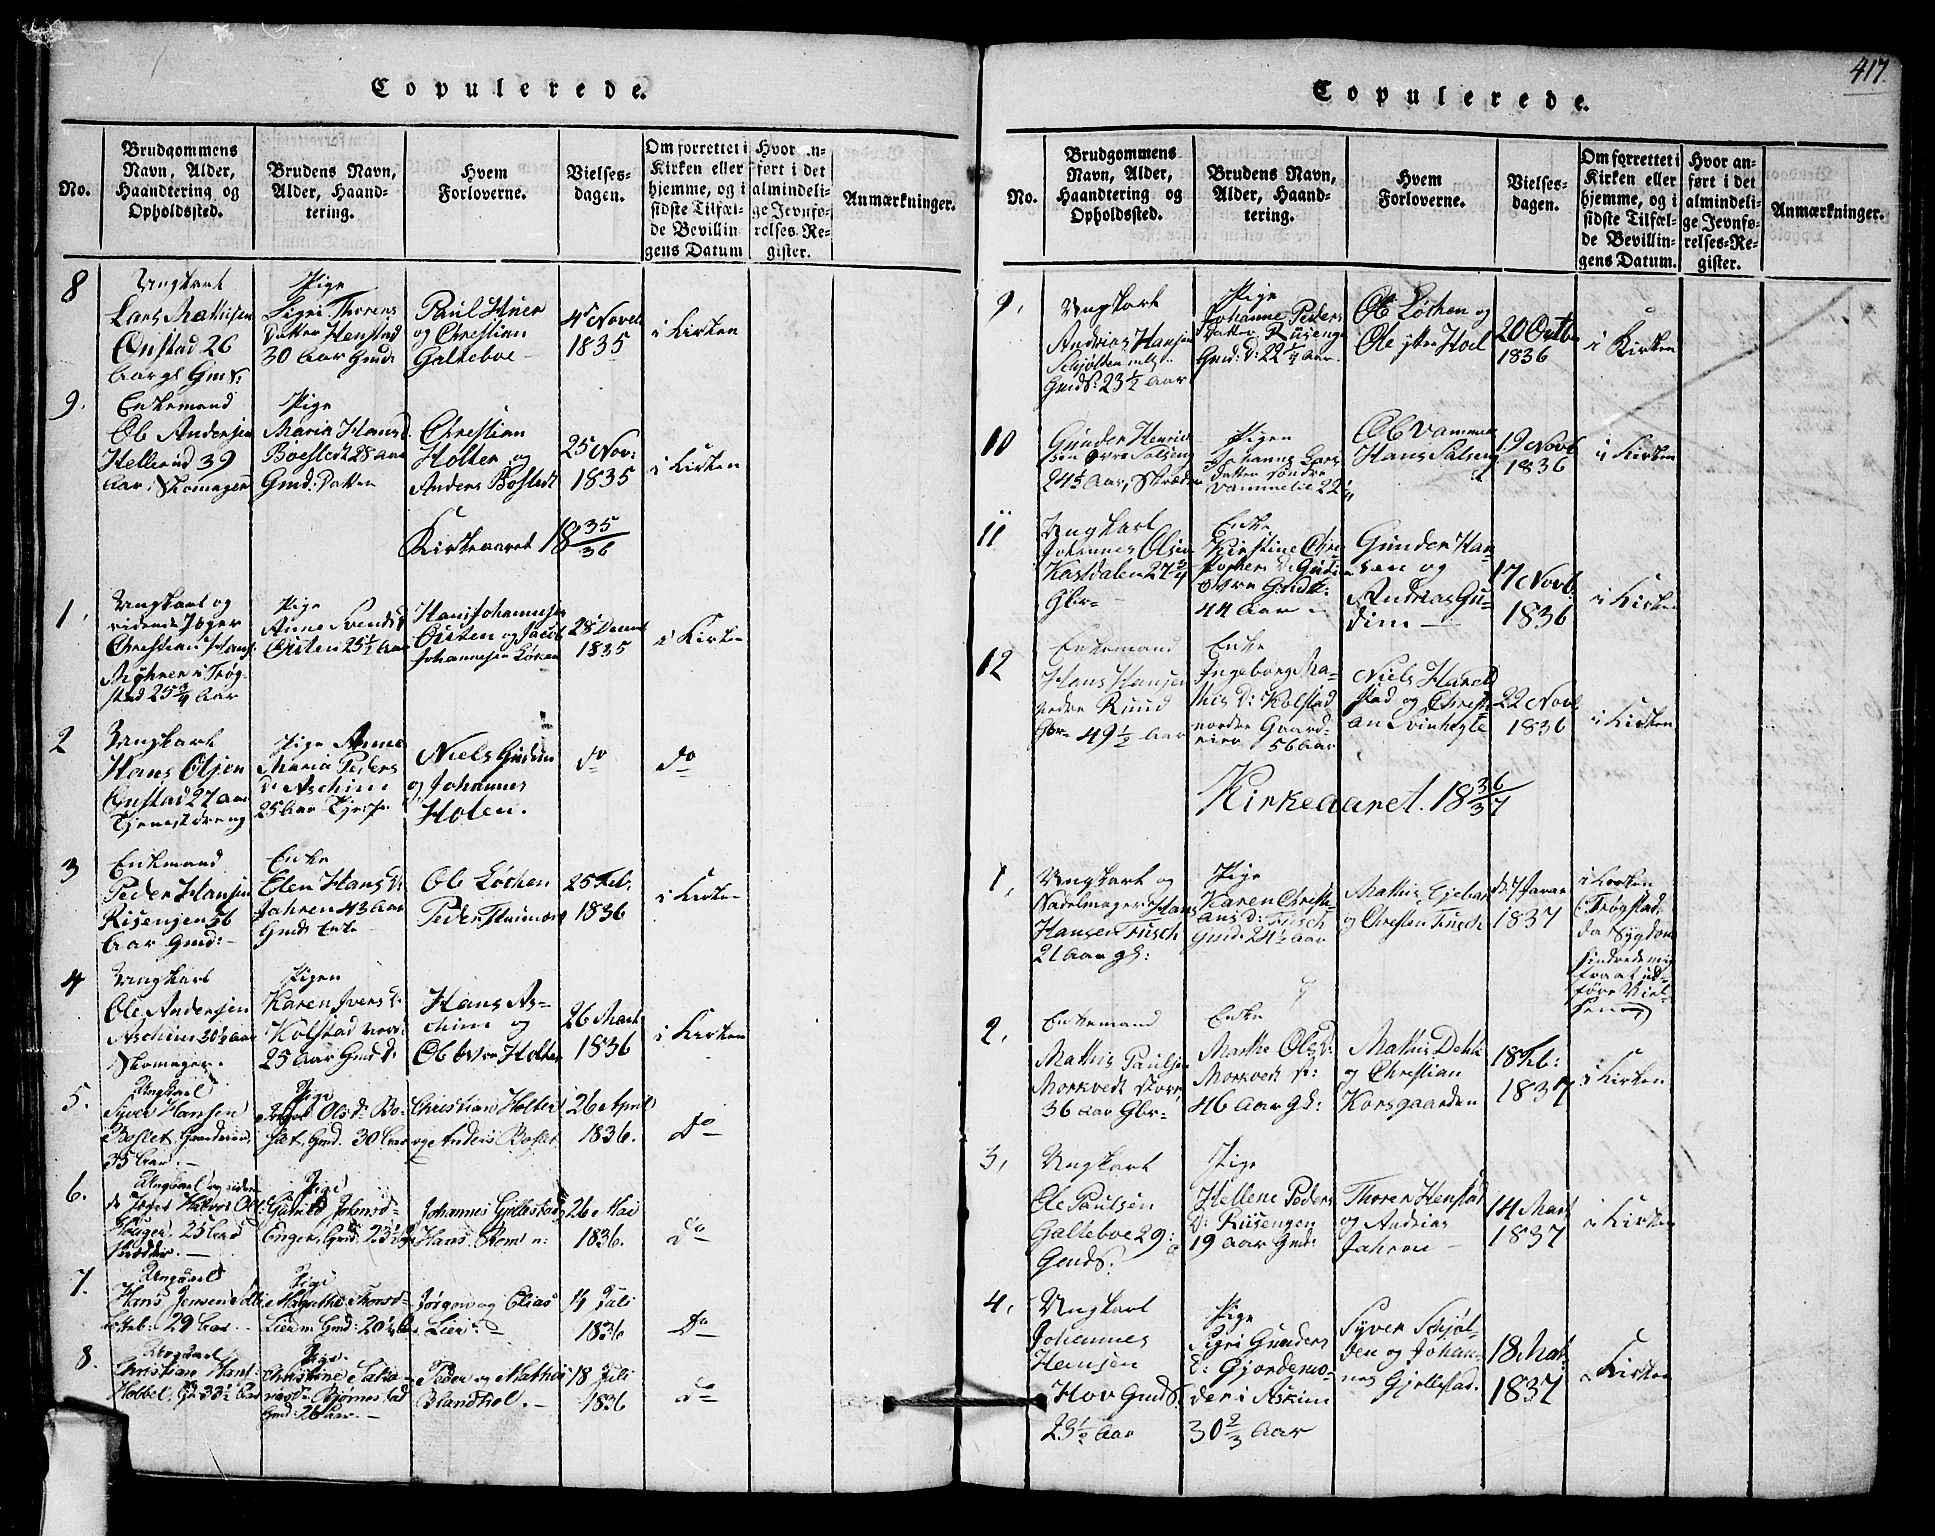 Copulerede.
No.
Brudgommens
Navn, Alder,
Haandtering og
Opholdssted.
Brudens Navn,
Alder, Haand-
tering.
Hvem
Forloverne.
Vielses-
dagen.
Om forrettet i
Kirken eller
hjemme, og i
sidste Tilfæl-
de Bevillin-
gens Datum
Hvor an-
ført i det
almindeli-
ge Jevnfø-
relses-Re-
gister.
Anmærkninger.
8
Ungkarl
Lars Mathisen
Onstad 26
Aar
Pige
Sigri Thorens
Datter Henstad
30 Aar Gmd:
Paul Huer
og Christian
Galteboe
4de Novek
1835
i Kirken
9.
Enkemand
Ole Andersen
Hellerud 39
Aar, Skomager
Pige
Maria Hansd
Boestedt 28 aar
Gmd: Datter
Christian
Holter og
Anders Bostedt
25 Nov:
1835
i Kirken
Kirkeaaret 18 35/36
1,
Ungkarl og
ridende Jæger
Christian Hans
Myhren i Trøg-
stad 25 3/4 Aar
Pige
Anne Svendsd
Oisten 25 1/2 Aar
Hans Johannesen
Oisten og Jacob
Johannesen Løken
28 Decmb
1835
i Kirken
2
Ungkarl
Hans Olsen
Onstad 27 aar
Tjenestdreng
Pige Anne
Maria Peders
D: Aschim
25 Aar Tjen:pe
Niels Gudim
og Johannes
Holen.
do
do
3
Enkemand
Peder Hansen
Risengen 56
Aar Gmd:
Enke
Elen Hans D:
Jahren 43 Aar
Gmds Enke
Ole Løchen
Peder
25 Feb.
1836
i Kirken
4
Ungkarl
Ole Andersen
Aschim 30 1/2 Aar
Skomager.
Pigen
Karen Ivers D:
Kolstad nord:
25 Aar Gmd D:
Hans As-
chim og
Ole østre Holter
26 Mart
1836
i Kirken
5.
Ungkarl
Syver Hansen
Boslet, Gaardeier,
35 Aar.
Pige
Olsd: Bo-
Gmd. 30 Aar
Christian Holter
og Anders Boslet
26 April
1836.
Do
6.
Ungkarl og riden-
de Jæger Halvor Ols
Hauger, 25 Aar
Skrædder.
Pige
Johnsd
Enger, Gmd. 23 1/2
Johannes Gjellestad
Hans
26 Mai
1836.
Do
7.
Ungkarl
Hans Jensen
29 Aar.
Pige
Magrethe Thorsd
Lier Gmd: 20 1/2 A.
Jørgen og Elias
Lier.
14 Juli
1836
Do
8.
Ungkarl
Christian Hans-
Hobbel, 33 1/2 Aar
Pige.
Christine
Bjørnestad
Gmd: 26 Aar.
Peder og Mathis
Brandhol.
18 Juli
1836
Do
417
Copulerede.
No.
Brudgommens
Navn, Alder,
Haandtering og
Opholdssted.
Brudens Navn,
Alder, Haand-
tering.
Hvem
Forloverne.
Vielses-
dagen.
Om forrettet i
Kirken eller
hjemme, og i
sidste Tilfæl-
de Bevillin-
gens Datum.
Hvor an-
ført i det
almindeli-
ge Jevnfø-
relses-Re-
gister.
Anmærkninger.
9,
Ungkarl
Andrias Hansen
Schjolden
Gmds: 23 1/2 Aar
Pige
Johanne Peders
Datter Riiseng
Gmd: D: 22 1/4 Aar
Ole Løchen og
Ole Hoel
20 Octbr
1836
i Kirken
10
Gunder Henric
sen Øvre Salseng
24 1/2 Aar, Skræder
Pigen
Johanne Lars
Datter søndre
Vammelie 22 1/4
Ole Vammen
Hans Salseng
19 Novb
1836
i Kirken
11
Ungkarl
Johannes Olsen
Kastdalen 27 3/4
Gbr
Enke
Kirstine Chri-
stophers D: Gudim
østre
44 Aar
Gunder Han-
sen og
Andrias Gu-
dim
17 Novb.
1836
i Kirken
12
Enkemand
Hans Hansen
nedre Ruud
Gbr 49 1/2 Aar
Enke
Ingeborg Ma-
this D: Kolstad
nordre Gaard-
eier 56 Aar
Niels Harald
stad og Christi-
an Svinhegle
22 Novb
1836
i Kirken
Kirkeaaret. 18 36/37
1,
Ungkarl og
Nadelmager Hans
Hansen Tusch
21 Aar gl:
Pige
Karen Christi-
ans D: Tusch
Gmd. 24 1/2 Aar
Mathis
og Christen Tusch
Janar
1837
i Kirken
i Trøgstad
da Sygdom
hindrede mig
fra at ud-
føre Viel-
sen
2.
Enkemand
Mathis Paulsen
Morkvedt store,
36 Aar Gbr
Enke
Marthe Ols D:
Morkvedt st:
46 Aar gl:
Mathis Dehli
og Christian
Korsgaarden
18 Feb:
1837
i Kirken
3,
Ungkarl
Ole Paulsen
Galteboe 29
Gmds:
Pige
Hellene Peders
D: Riisengen
19 Aar Gmd:
Thorer Henstad
og Andrias
Jahren
14 Mart
1837
i Kirken
4,
Ungkarl
Johannes
Hansen
Hov Gmds
23 1/2 Aar
Pige
Sigri Gunders
D: Gjordemo-
der i Askim
30 2/3 Aar
Syver Schjøl-
den og Johan-
nes Gjellestad.
18 Mat
1837
i Kirken